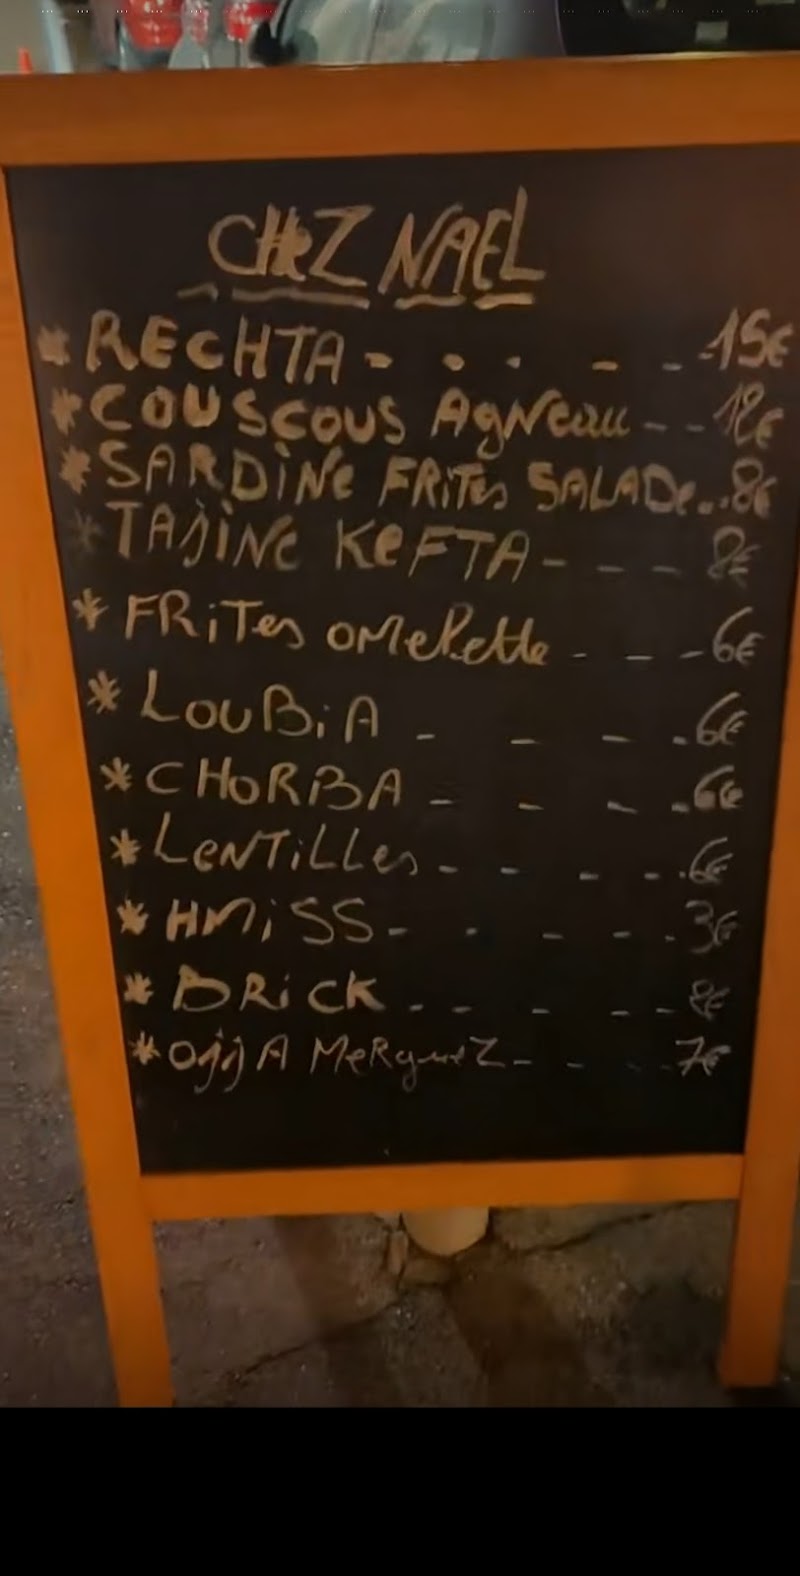 CHEZ NAEL
* RECHTA - - - - - 15€
* COUSCOUS AGNeau - - 12€
* SARDINE FRITES SALADE .. 8€
* TAJINE KEFTA - - - - 8€
* FRITES OMELETTE - - - 6€
* LOUBIA - - - - 6€
* CHORBA - - - - 6€
* LENTILLES - - - - 6€
* HMISS - - - - - 3€
* BRICK - - - - - 8€
* OJJA MERGUEZ - - - - 7€